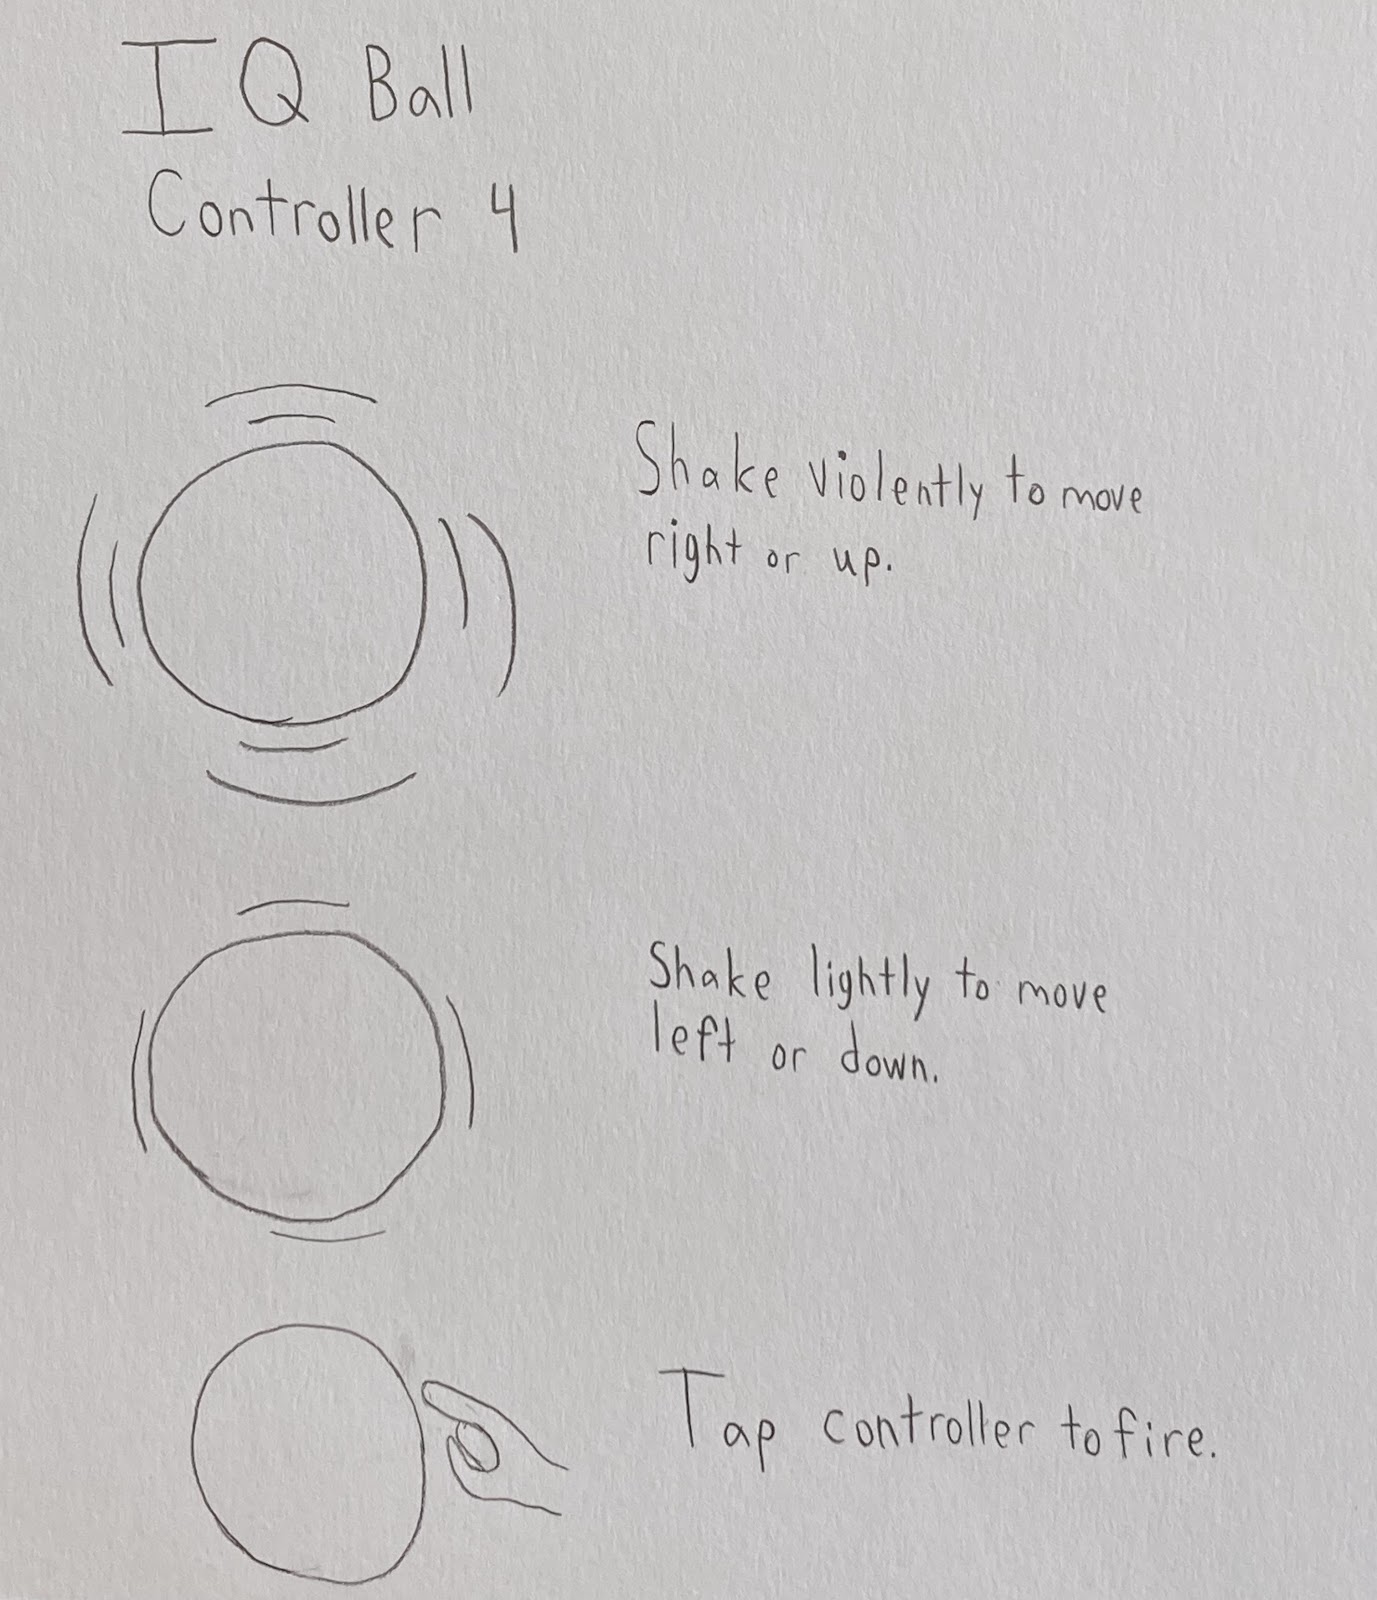 IQ Ball
Controller 4
Shake violently to move
right or up.
Shake lightly to move
left or down.
Tap controller to fire.